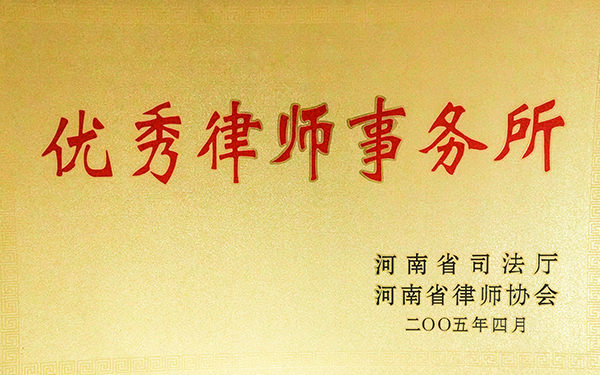 优秀律师事务所
河南省司法厅
河南省律师协会
二〇〇五年四月